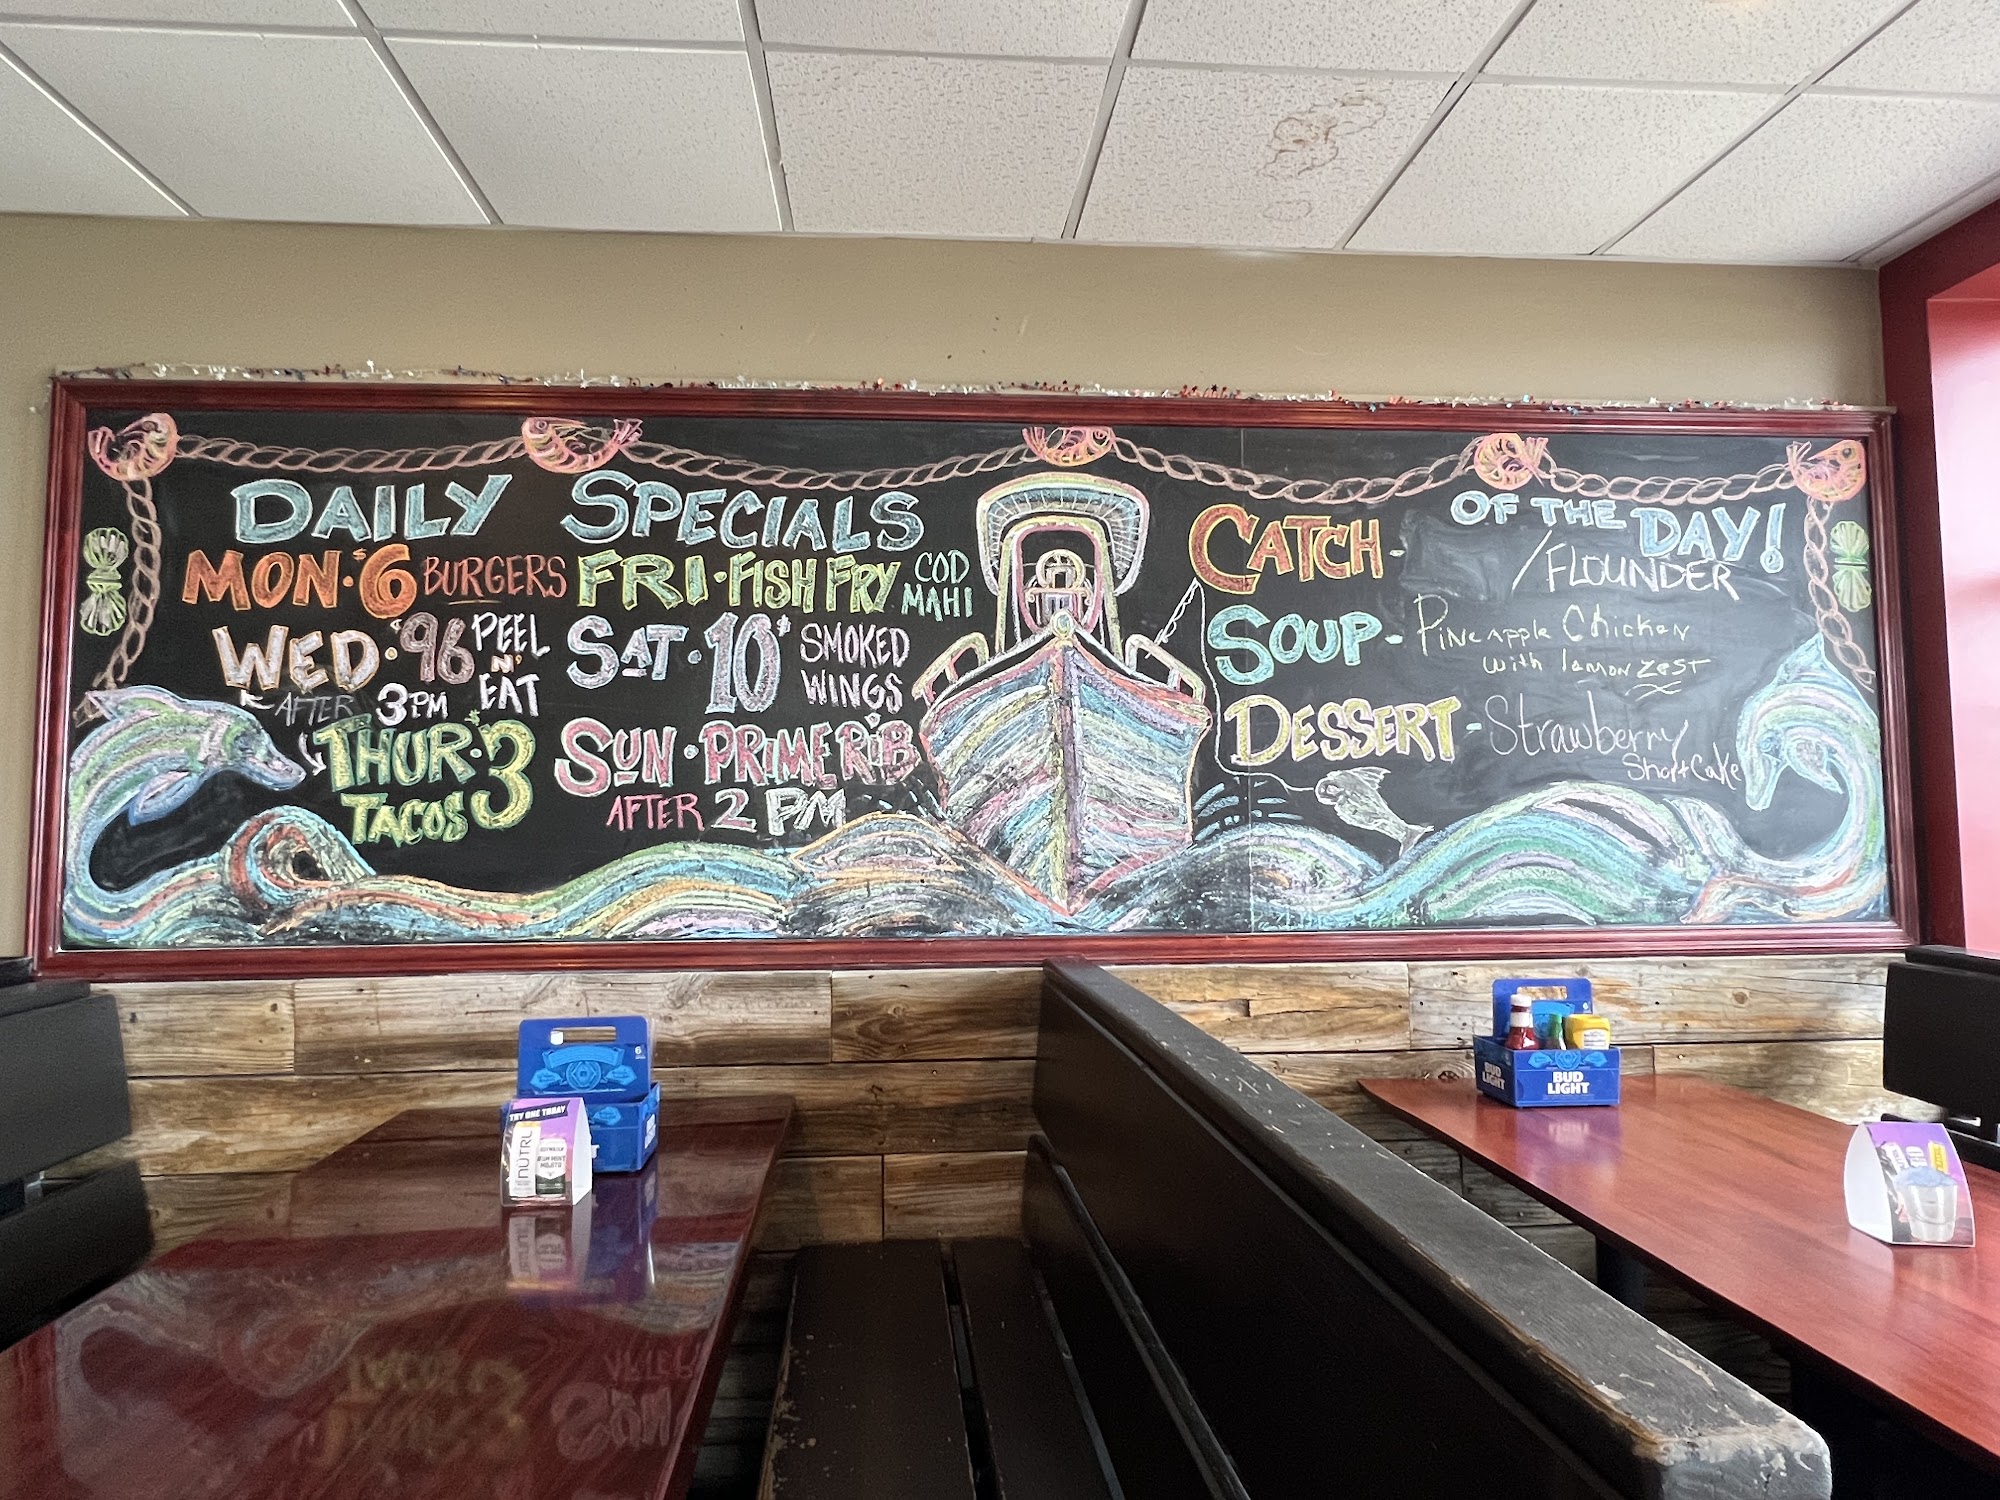 DAILY SPECIALS
MON · $6 BURGERS
WED · 96¢ PEEL N' EAT
AFTER 3PM
THUR · $3 TACOS
FRI · FISH FRY COD MAHI
SAT · 10$ SMOKED WINGS
SUN · PRIME RIB
AFTER 2 PM
OF THE DAY!
CATCH - /FLOUNDER
SOUP - PINEapplE ChickEN
with lEmoN ZEST
DESSERT - Strawberry
ShortCake
TRY ONE TODAY
NÜTRL
MOJITO
6
BUD LIGHT
BUD LIGHT